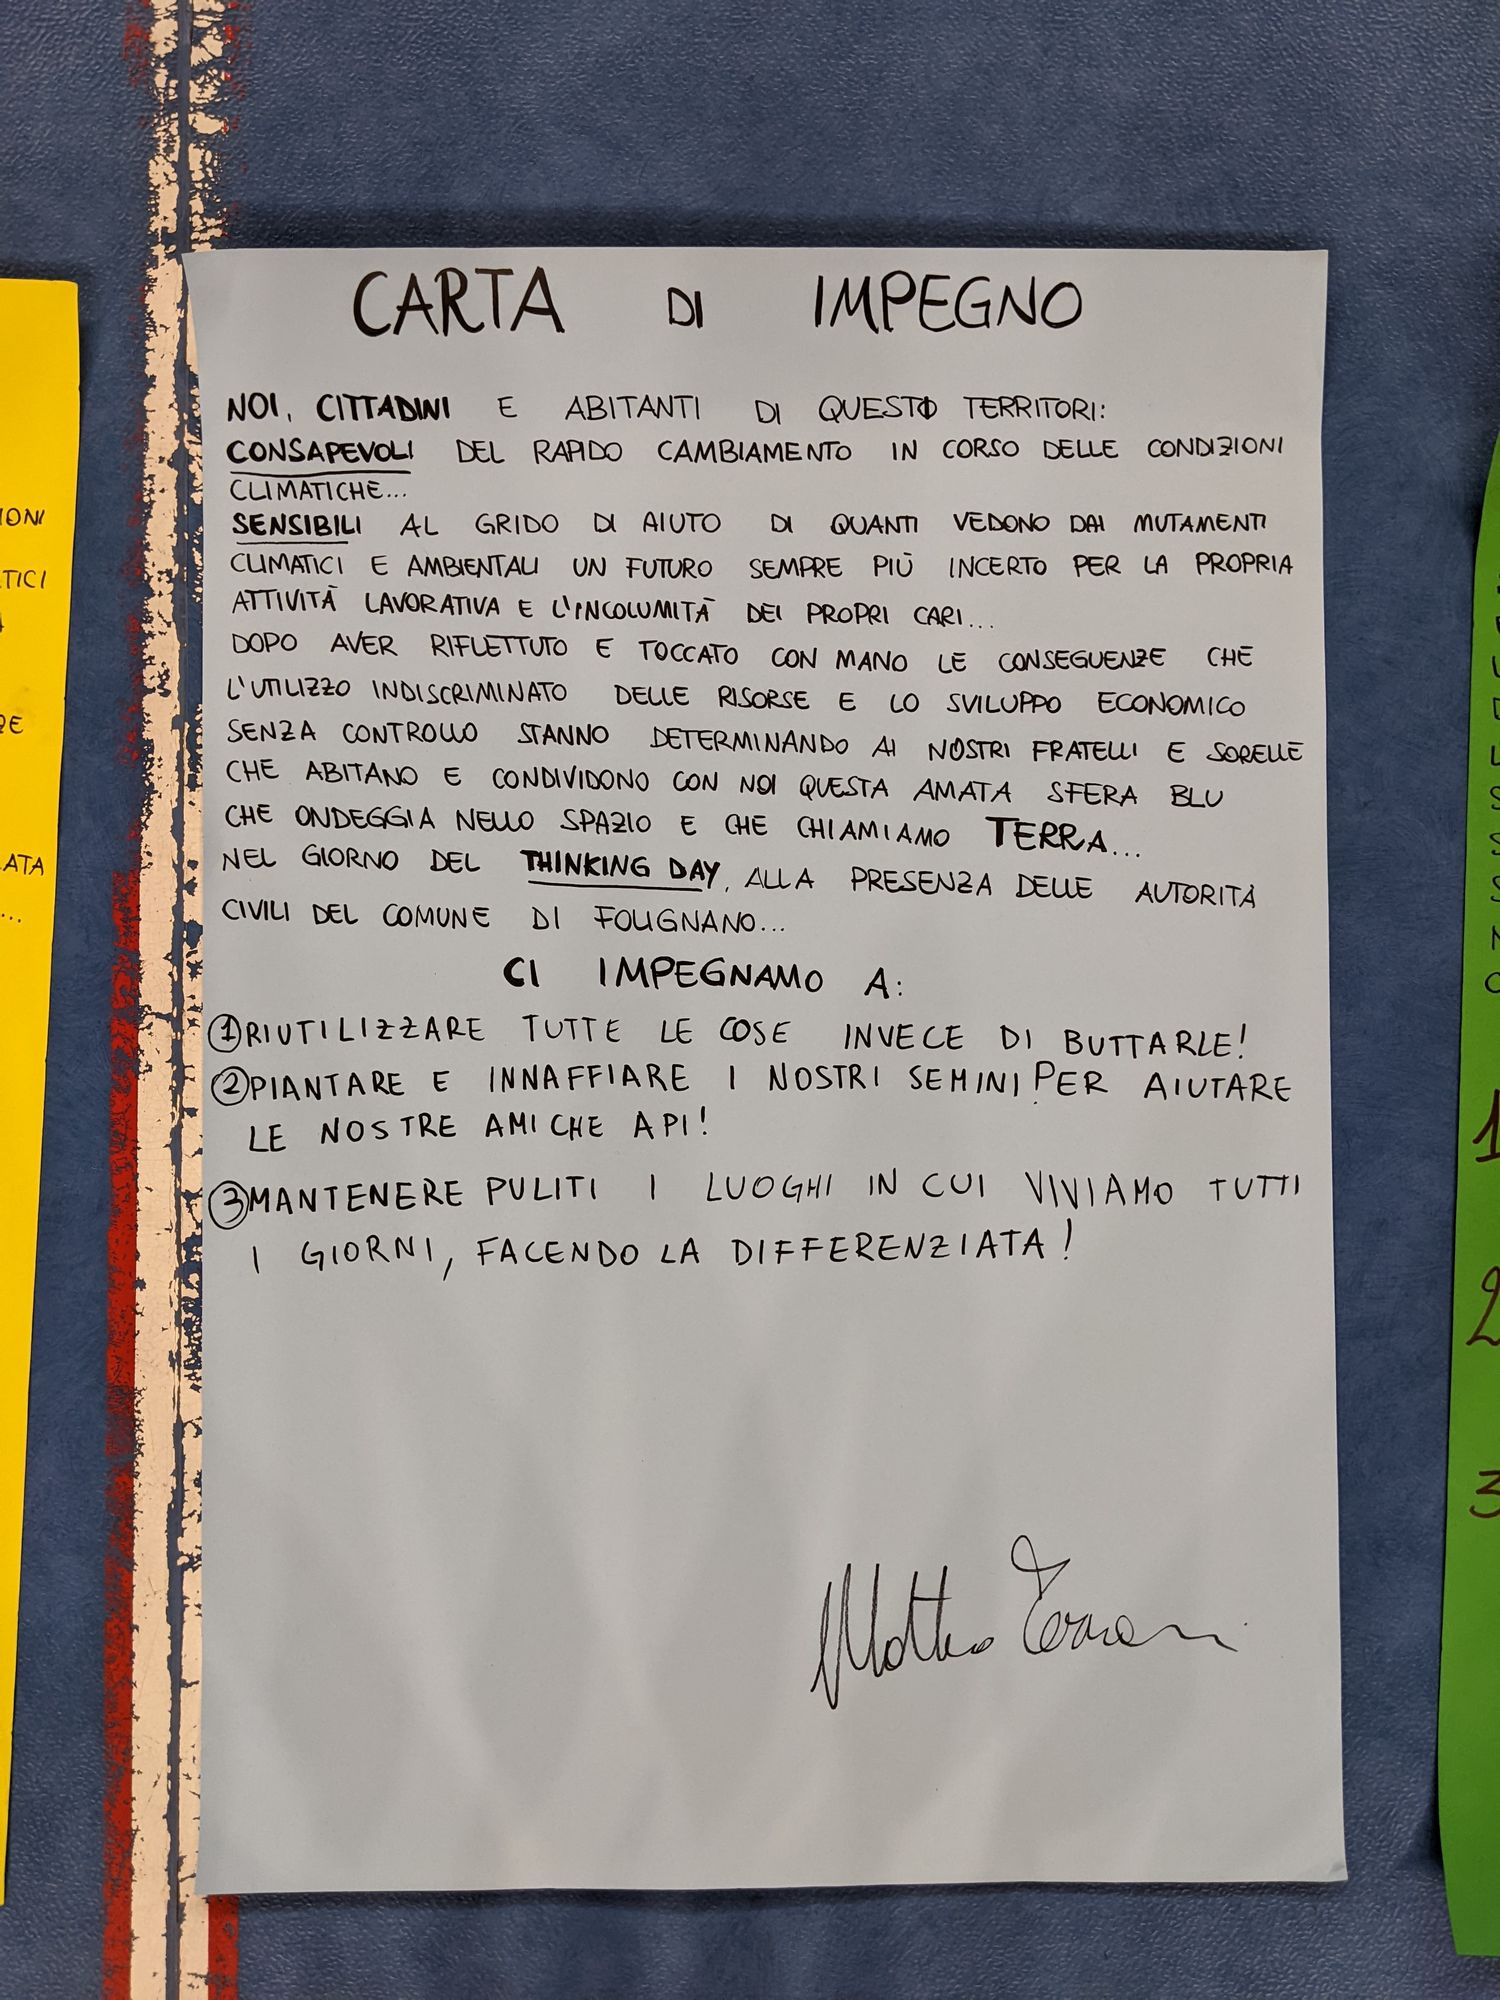 CARTA DI IMPEGNO
NOI, CITTADINI E ABITANTI DI QUESTO TERRITORI:
CONSAPEVOLI DEL RAPIDO CAMBIAMENTO IN CORSO DELLE CONDIZIONI
CLIMATICHE...
SENSIBILI AL GRIDO DI AIUTO DI QUANTI VEDONO DAI MUTAMENTI
CLIMATICI E AMBIENTALI UN FUTURO SEMPRE PIÙ INCERTO PER LA PROPRIA
ATTIVITÀ LAVORATIVA E L'INCOLUMITÀ DEI PROPRI CARI...
DOPO AVER RIFLETTUTO E TOCCATO CON MANO LE CONSEGUENZE CHE
L'UTILIZZO INDISCRIMINATO DELLE RISORSE E LO SVILUPPO ECONOMICO
SENZA CONTROLLO STANNO DETERMINANDO AI NOSTRI FRATELLI E SORELLE
CHE ABITANO E CONDIVIDONO CON NOI QUESTA AMATA SFERA BLU
CHE ONDEGGIA NELLO SPAZIO E CHE CHIAMIAMO TERRA...
NEL GIORNO DEL THINKING DAY, ALLA PRESENZA DELLE AUTORITÀ
CIVILI DEL COMUNE DI FOLIGNANO...
CI IMPEGNAMO A:
1 RIUTILIZZARE TUTTE LE COSE INVECE DI BUTTARLE!
2 PIANTARE E INNAFFIARE I NOSTRI SEMINI PER AIUTARE
LE NOSTRE AMICHE API!
3 MANTENERE PULITI I LUOGHI IN CUI VIVIAMO TUTTI
I GIORNI, FACENDO LA DIFFERENZIATA!
Matteo Terrani
IONI
TICI
RE
LATA
...
1
2
3